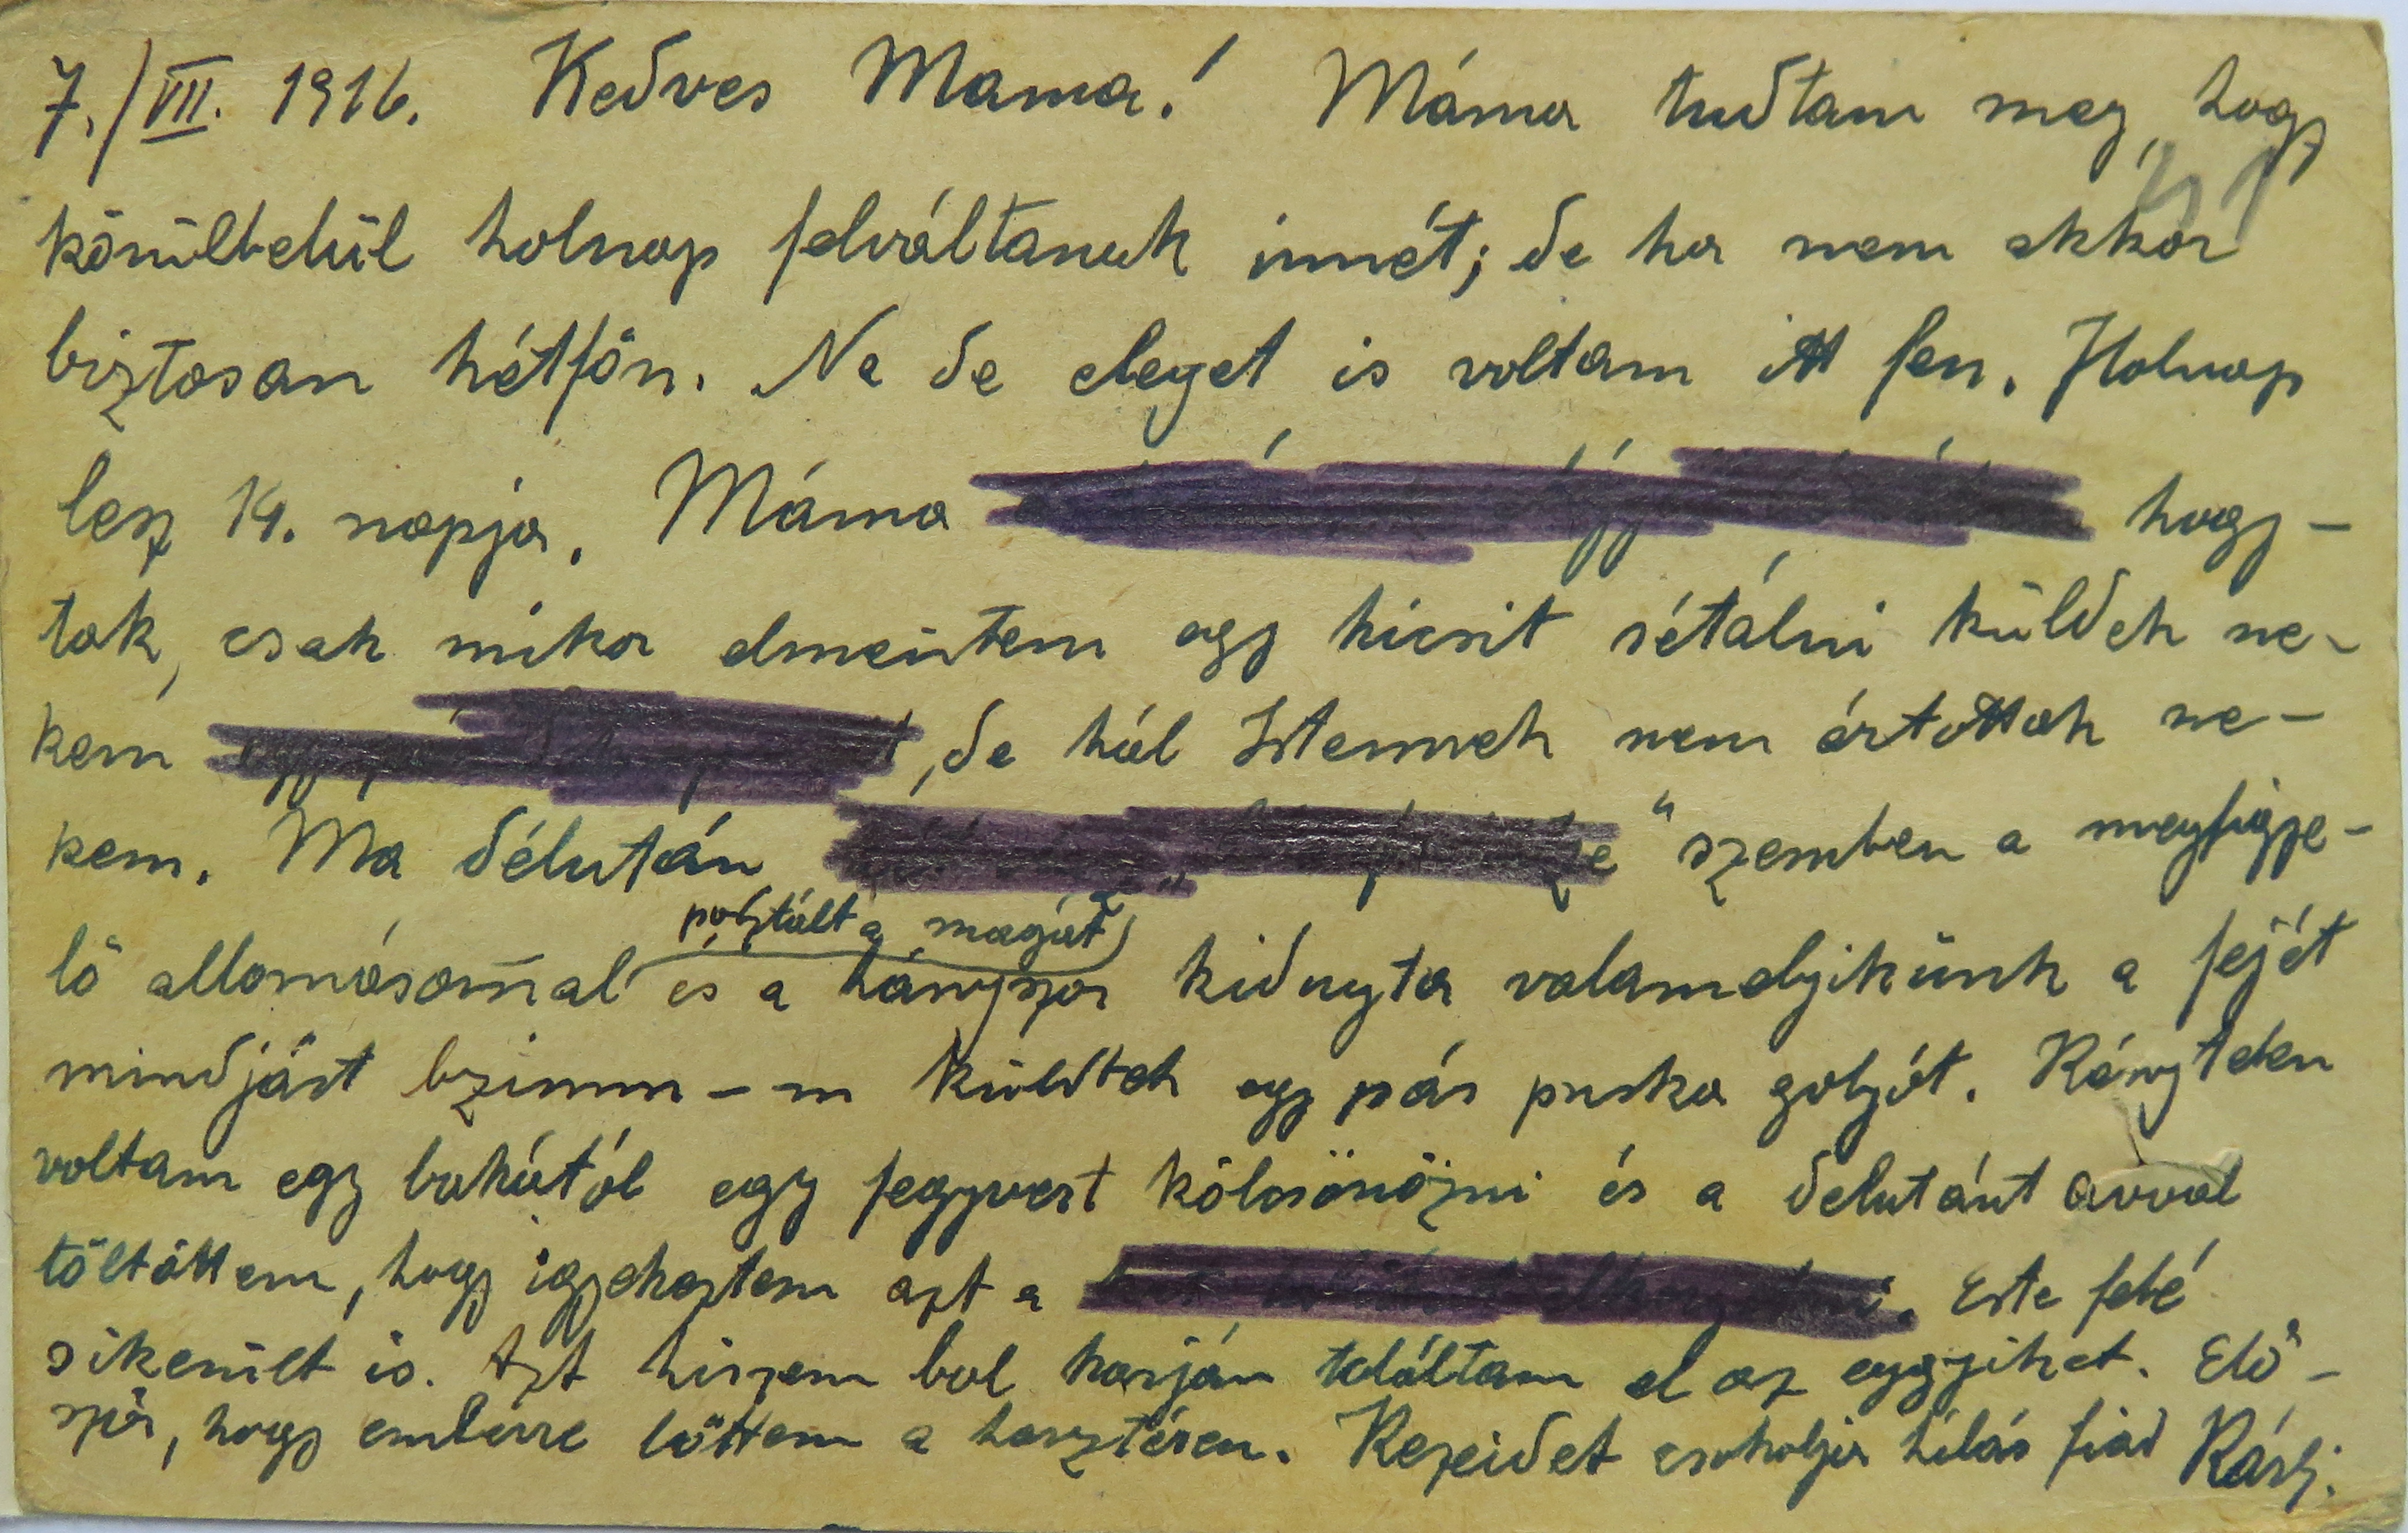 7./VII. 1916. Kedves Mama! Máma tudtam meg, hogy
körülbelül holnap felváltanak innét; de ha nem akkor
biztosan hétfőn. Na de eleget is voltam itt fen. Holnap
lesz 14. napja. Máma hagy-
tak, csak mikor elmentem egy kicsit sétálni küldek ne-
kem , de hál Istennek nem ártottak ne-
kem. Ma délután " szemben a megfigye-
lő allomásommal posztált a magát és a hányszor kidugta valamelyikünk a fejét
mindjárt bzimm-m küldtek egy pár puska golyót. Kénytelen
voltam egy bakától egy fegyvert kölcsönözni és a delutánt avval
töltöttem, hogy igyekeztem azt a . Este felé
sikerült is. Azt hiszem bal karján találtam el az eggyiket. Elő-
ször, hogy emberre lőttem a harztéren. Kezeidet csokolja hálás fiad Károly.